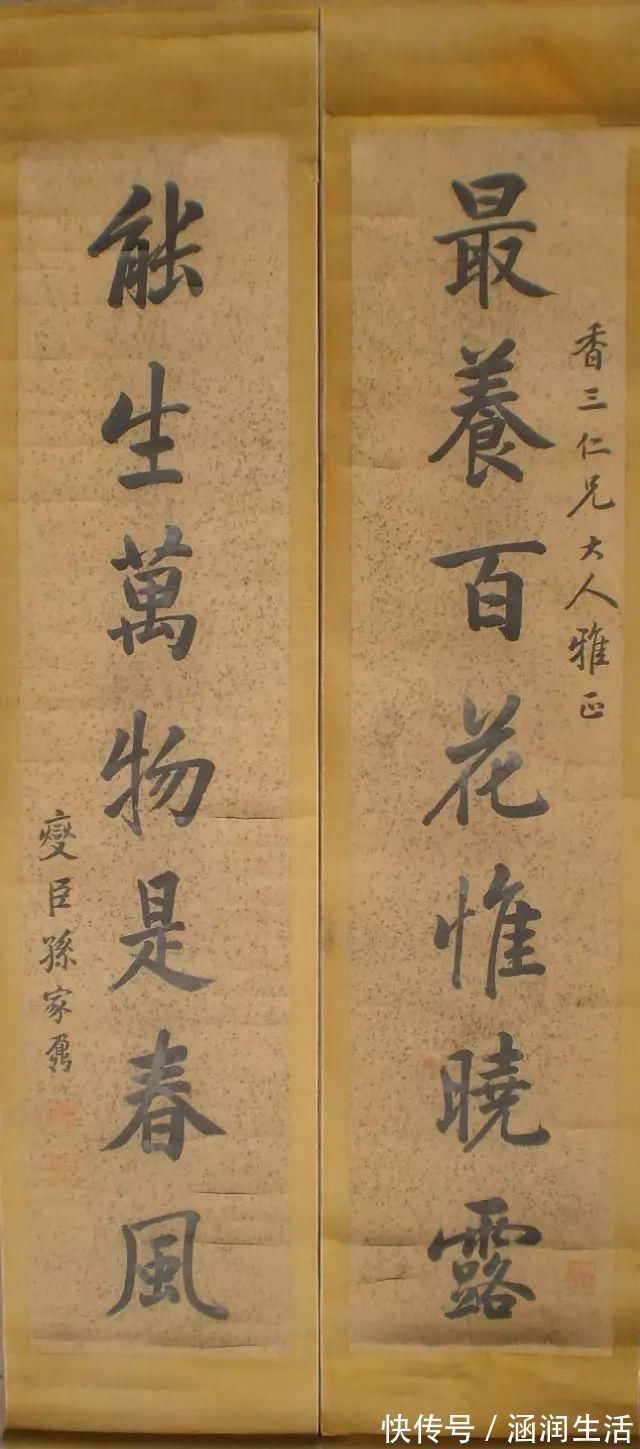 香三仁兄大人雅正
最養百花惟曉露
能生萬物是春風
燮臣孫家鼐
快传号/涵润生活